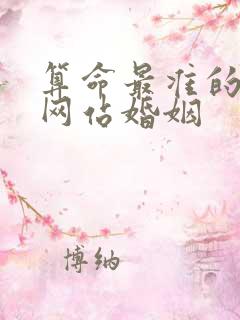 算命最准的
网占婚姻
博纳